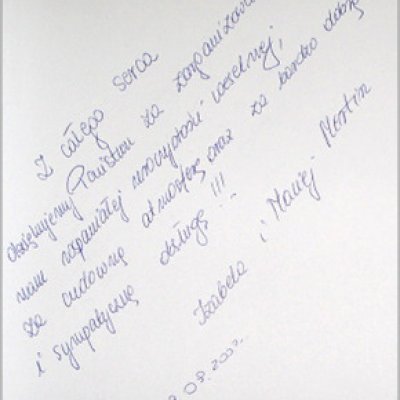 Z całego serca
dziękujemy Państwu za zorganizowa
nam wspaniałej uroczystości weselnej,
za cudowną atmosferę oraz za bardzo dobrą
i sympatyczną obsługę!!!
Izabela i Maciej Martin
08.2007.